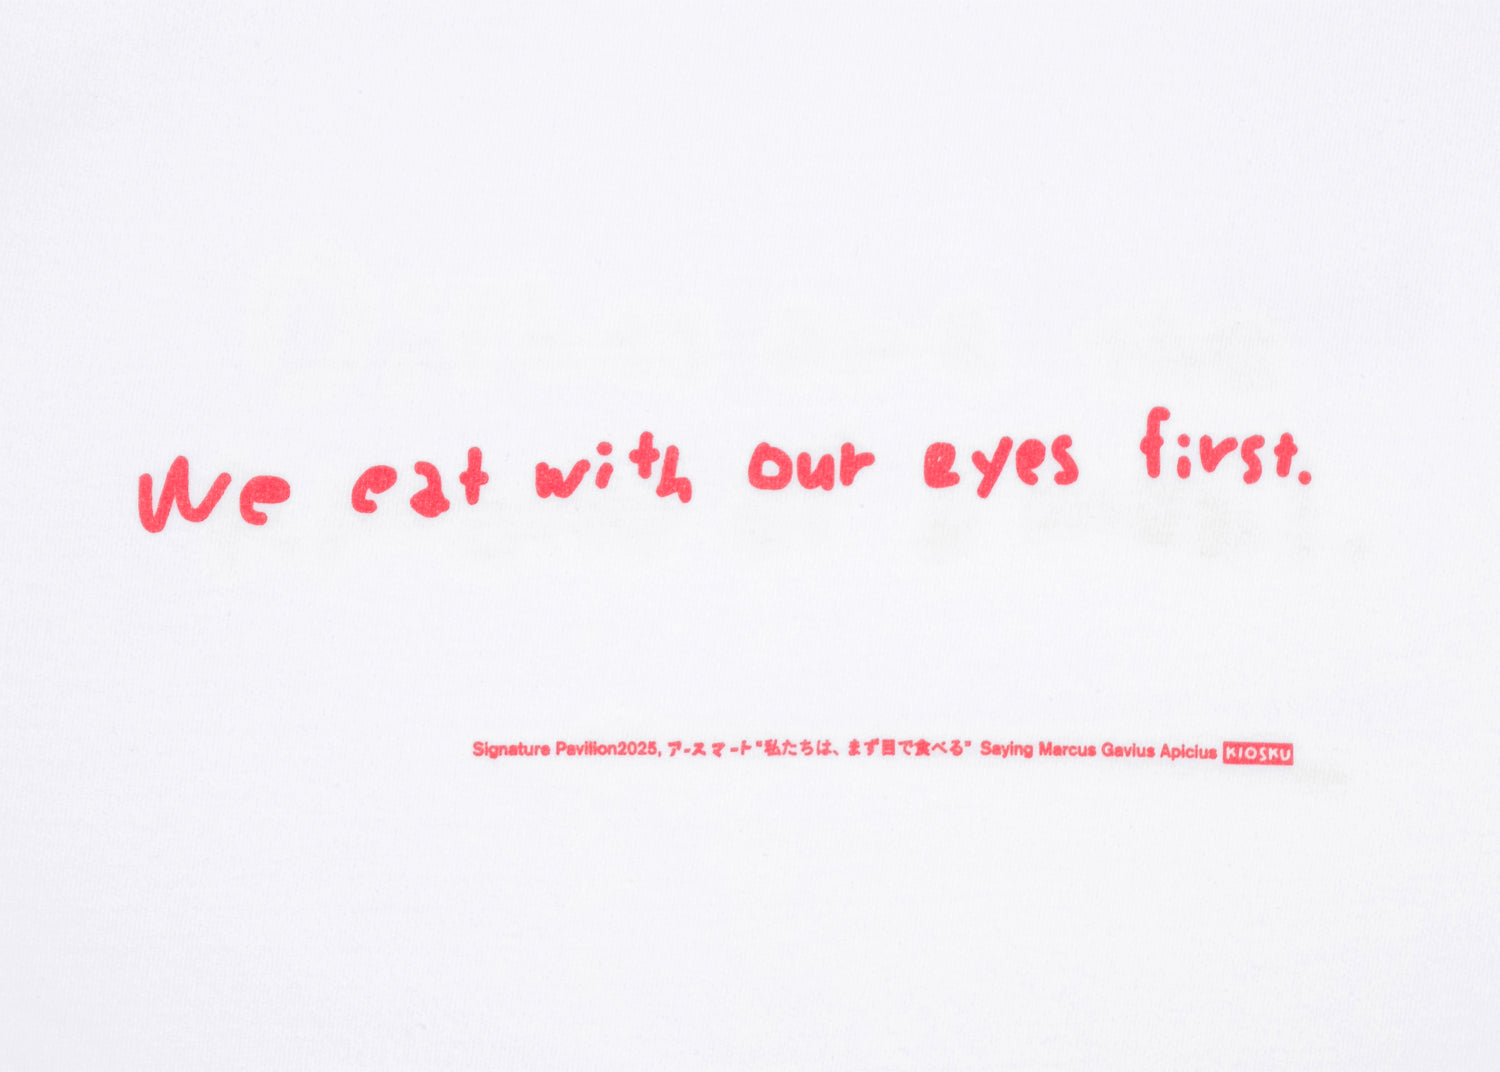 We eat with our eyes first.
Signature Pavilion2025, アースマート“私たちは、まず目で食べる” Saying Marcus Gavius Apicius KIOSKU